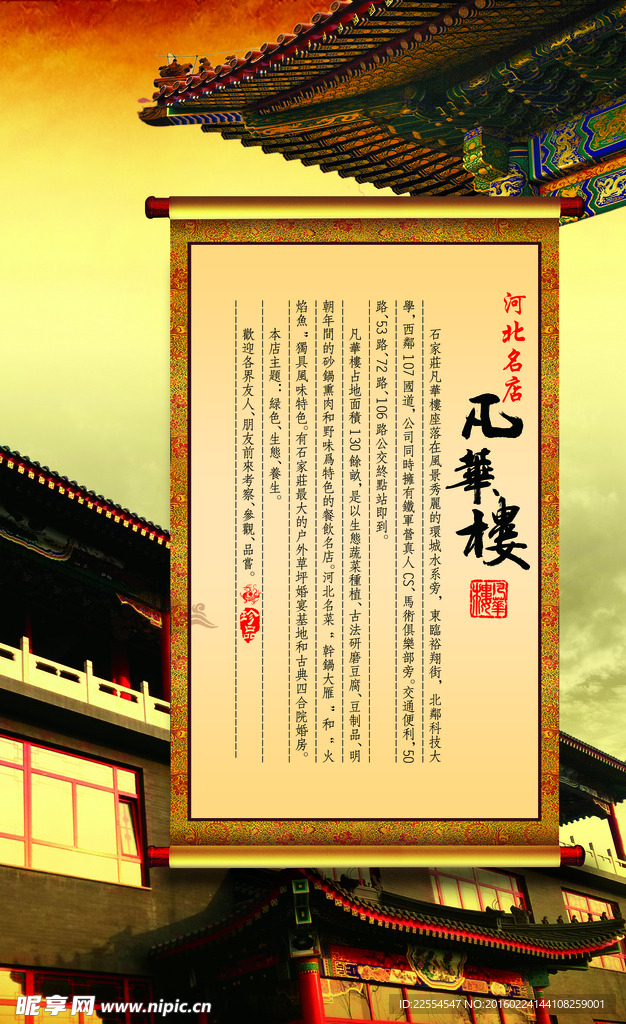 河北名店
凡華樓
凡華樓
石家莊凡華樓座落在風景秀麗的環城水系旁，東臨裕翔街，北鄰科技大
學，西鄰107國道，公司同時擁有鐵軍營真人CS、馬術俱樂部旁。交通便利，50
路、53路、72路、106路公交終點站即到。
凡華樓占地面積130餘畝，是以生態蔬菜種植、古法研磨豆腐、豆制品、明
朝年間的砂鍋熏肉和野味爲特色的餐飲名店。河北名菜“幹鍋大雁“和“火
焰魚“獨具風味特色。有石家莊最大的户外草坪婚宴基地和古典四合院婚房。
本店主題：綠色、生態、養生。
歡迎各界友人、朋友前來考察、參觀、品嘗。
珍品
昵享网 www.nipic.cn
ID:22554547 NO:20160224144108259001